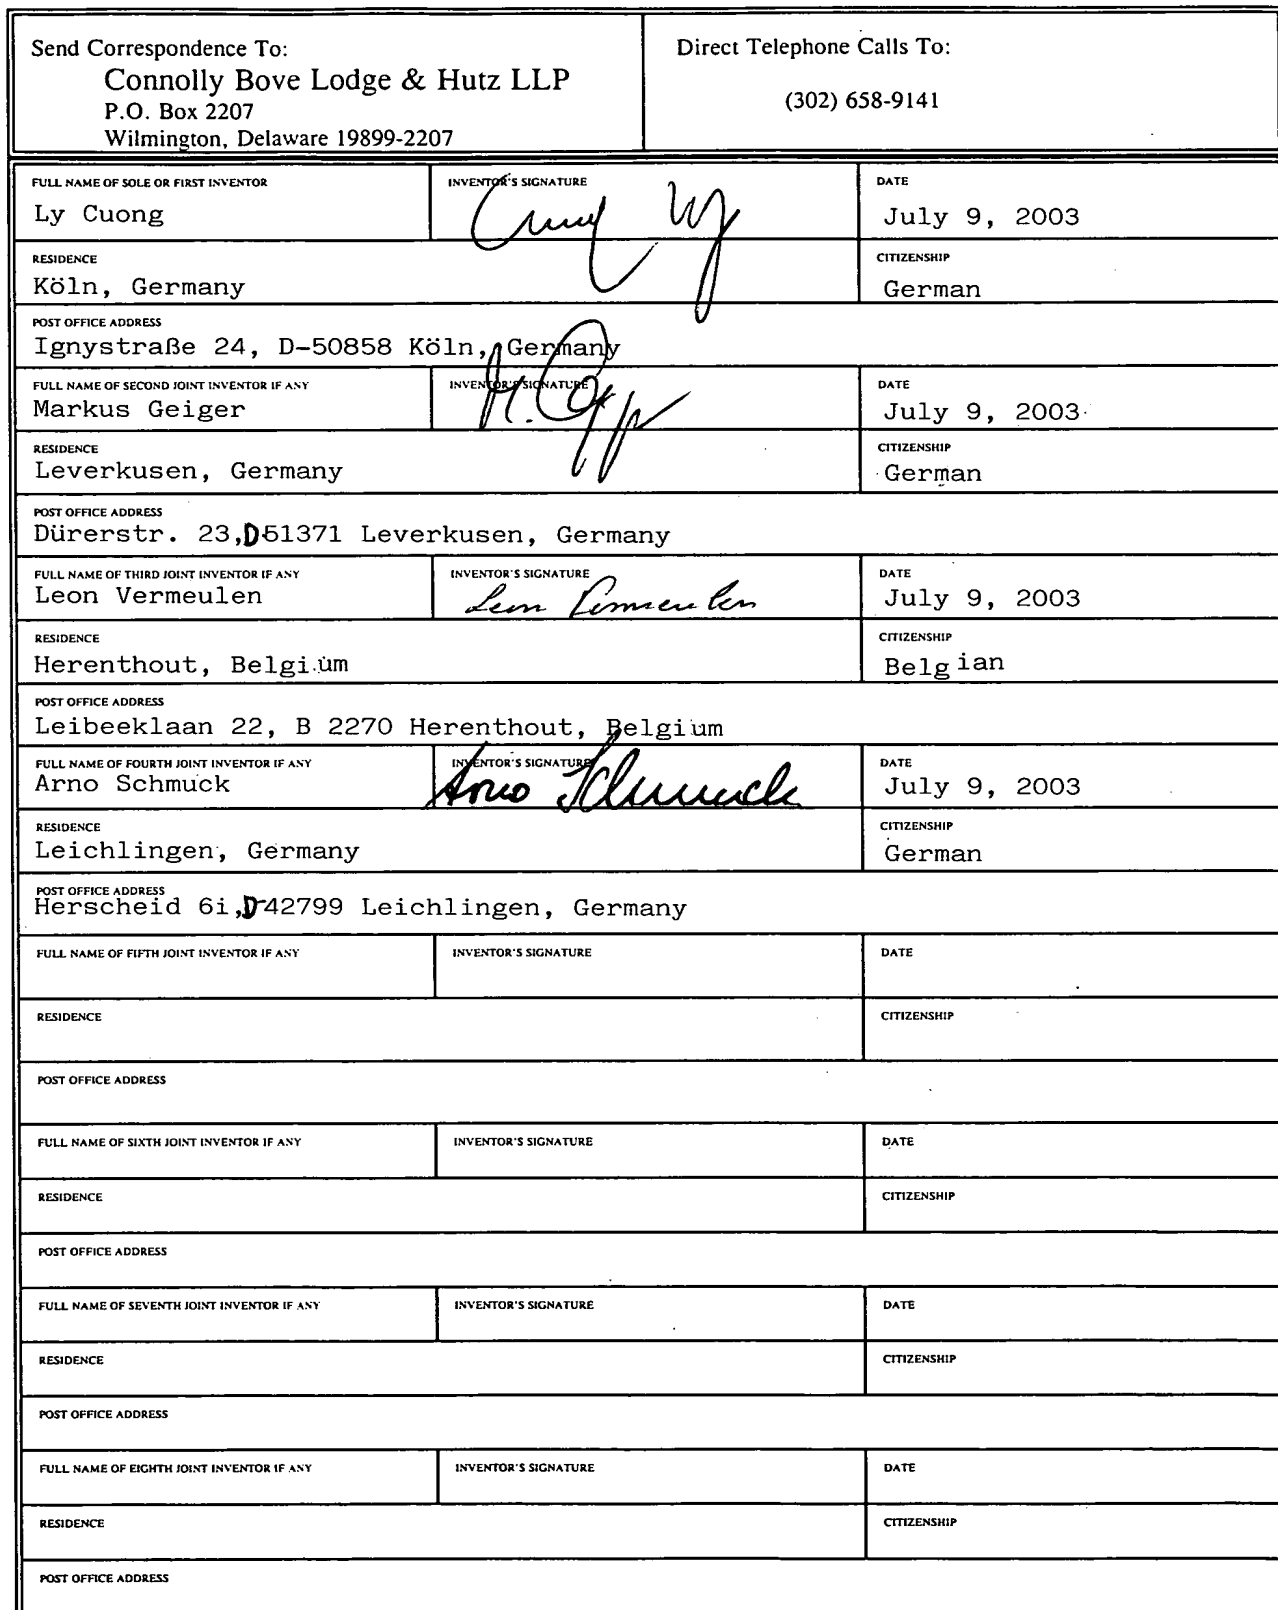 Send Correspondence To:
Connolly Bove Lodge & Hutz LLP
P.O. Box 2207
Wilmington, Delaware 19899-2207
Direct Telephone Calls To:
(302) 658-9141
FULL NAME OF SOLE OR FIRST INVENTOR
Ly Cuong
INVENTOR'S SIGNATURE
DATE
July 9, 2003
RESIDENCE
Köln, Germany
CITIZENSHIP
German
POST OFFICE ADDRESS
Ignystraße 24, D-50858 Köln, Germany
FULL NAME OF SECOND JOINT INVENTOR IF ANY
Markus Geiger
INVENTOR'S SIGNATURE
DATE
July 9, 2003
RESIDENCE
Leverkusen, Germany
CITIZENSHIP
German
POST OFFICE ADDRESS
Dürerstr. 23, D-51371 Leverkusen, Germany
FULL NAME OF THIRD JOINT INVENTOR IF ANY
Leon Vermeulen
INVENTOR'S SIGNATURE
Leon Vermeulen
DATE
July 9, 2003
RESIDENCE
Herenthout, Belgium
CITIZENSHIP
Belgian
POST OFFICE ADDRESS
Leibeeklaan 22, B 2270 Herenthout, Belgium
FULL NAME OF FOURTH JOINT INVENTOR IF ANY
Arno Schmuck
INVENTOR'S SIGNATURE
Arno Schmuck
DATE
July 9, 2003
RESIDENCE
Leichlingen, Germany
CITIZENSHIP
German
POST OFFICE ADDRESS
Herscheid 6i, D-42799 Leichlingen, Germany
FULL NAME OF FIFTH JOINT INVENTOR IF ANY
INVENTOR'S SIGNATURE
DATE
RESIDENCE
CITIZENSHIP
POST OFFICE ADDRESS
FULL NAME OF SIXTH JOINT INVENTOR IF ANY
INVENTOR'S SIGNATURE
DATE
RESIDENCE
CITIZENSHIP
POST OFFICE ADDRESS
FULL NAME OF SEVENTH JOINT INVENTOR IF ANY
INVENTOR'S SIGNATURE
DATE
RESIDENCE
CITIZENSHIP
POST OFFICE ADDRESS
FULL NAME OF EIGHTH JOINT INVENTOR IF ANY
INVENTOR'S SIGNATURE
DATE
RESIDENCE
CITIZENSHIP
POST OFFICE ADDRESS